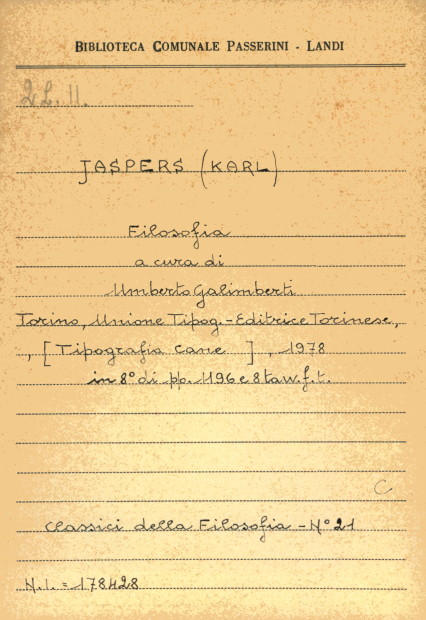 BIBLIOTECA COMUNALE PASSERINI - LANDI
2L. 11.
JASPERS (KARL)
Filosofia
a cura di
Umberto Galimberti
Torino, Unione Tipog.-Editrice Torinese,
, [Tipografia Cane ] , 1978
in 8° di pp. 1196 e 8 tav. f. t.
C
Classici della Filosofia - N° 21
N. I. = 178428